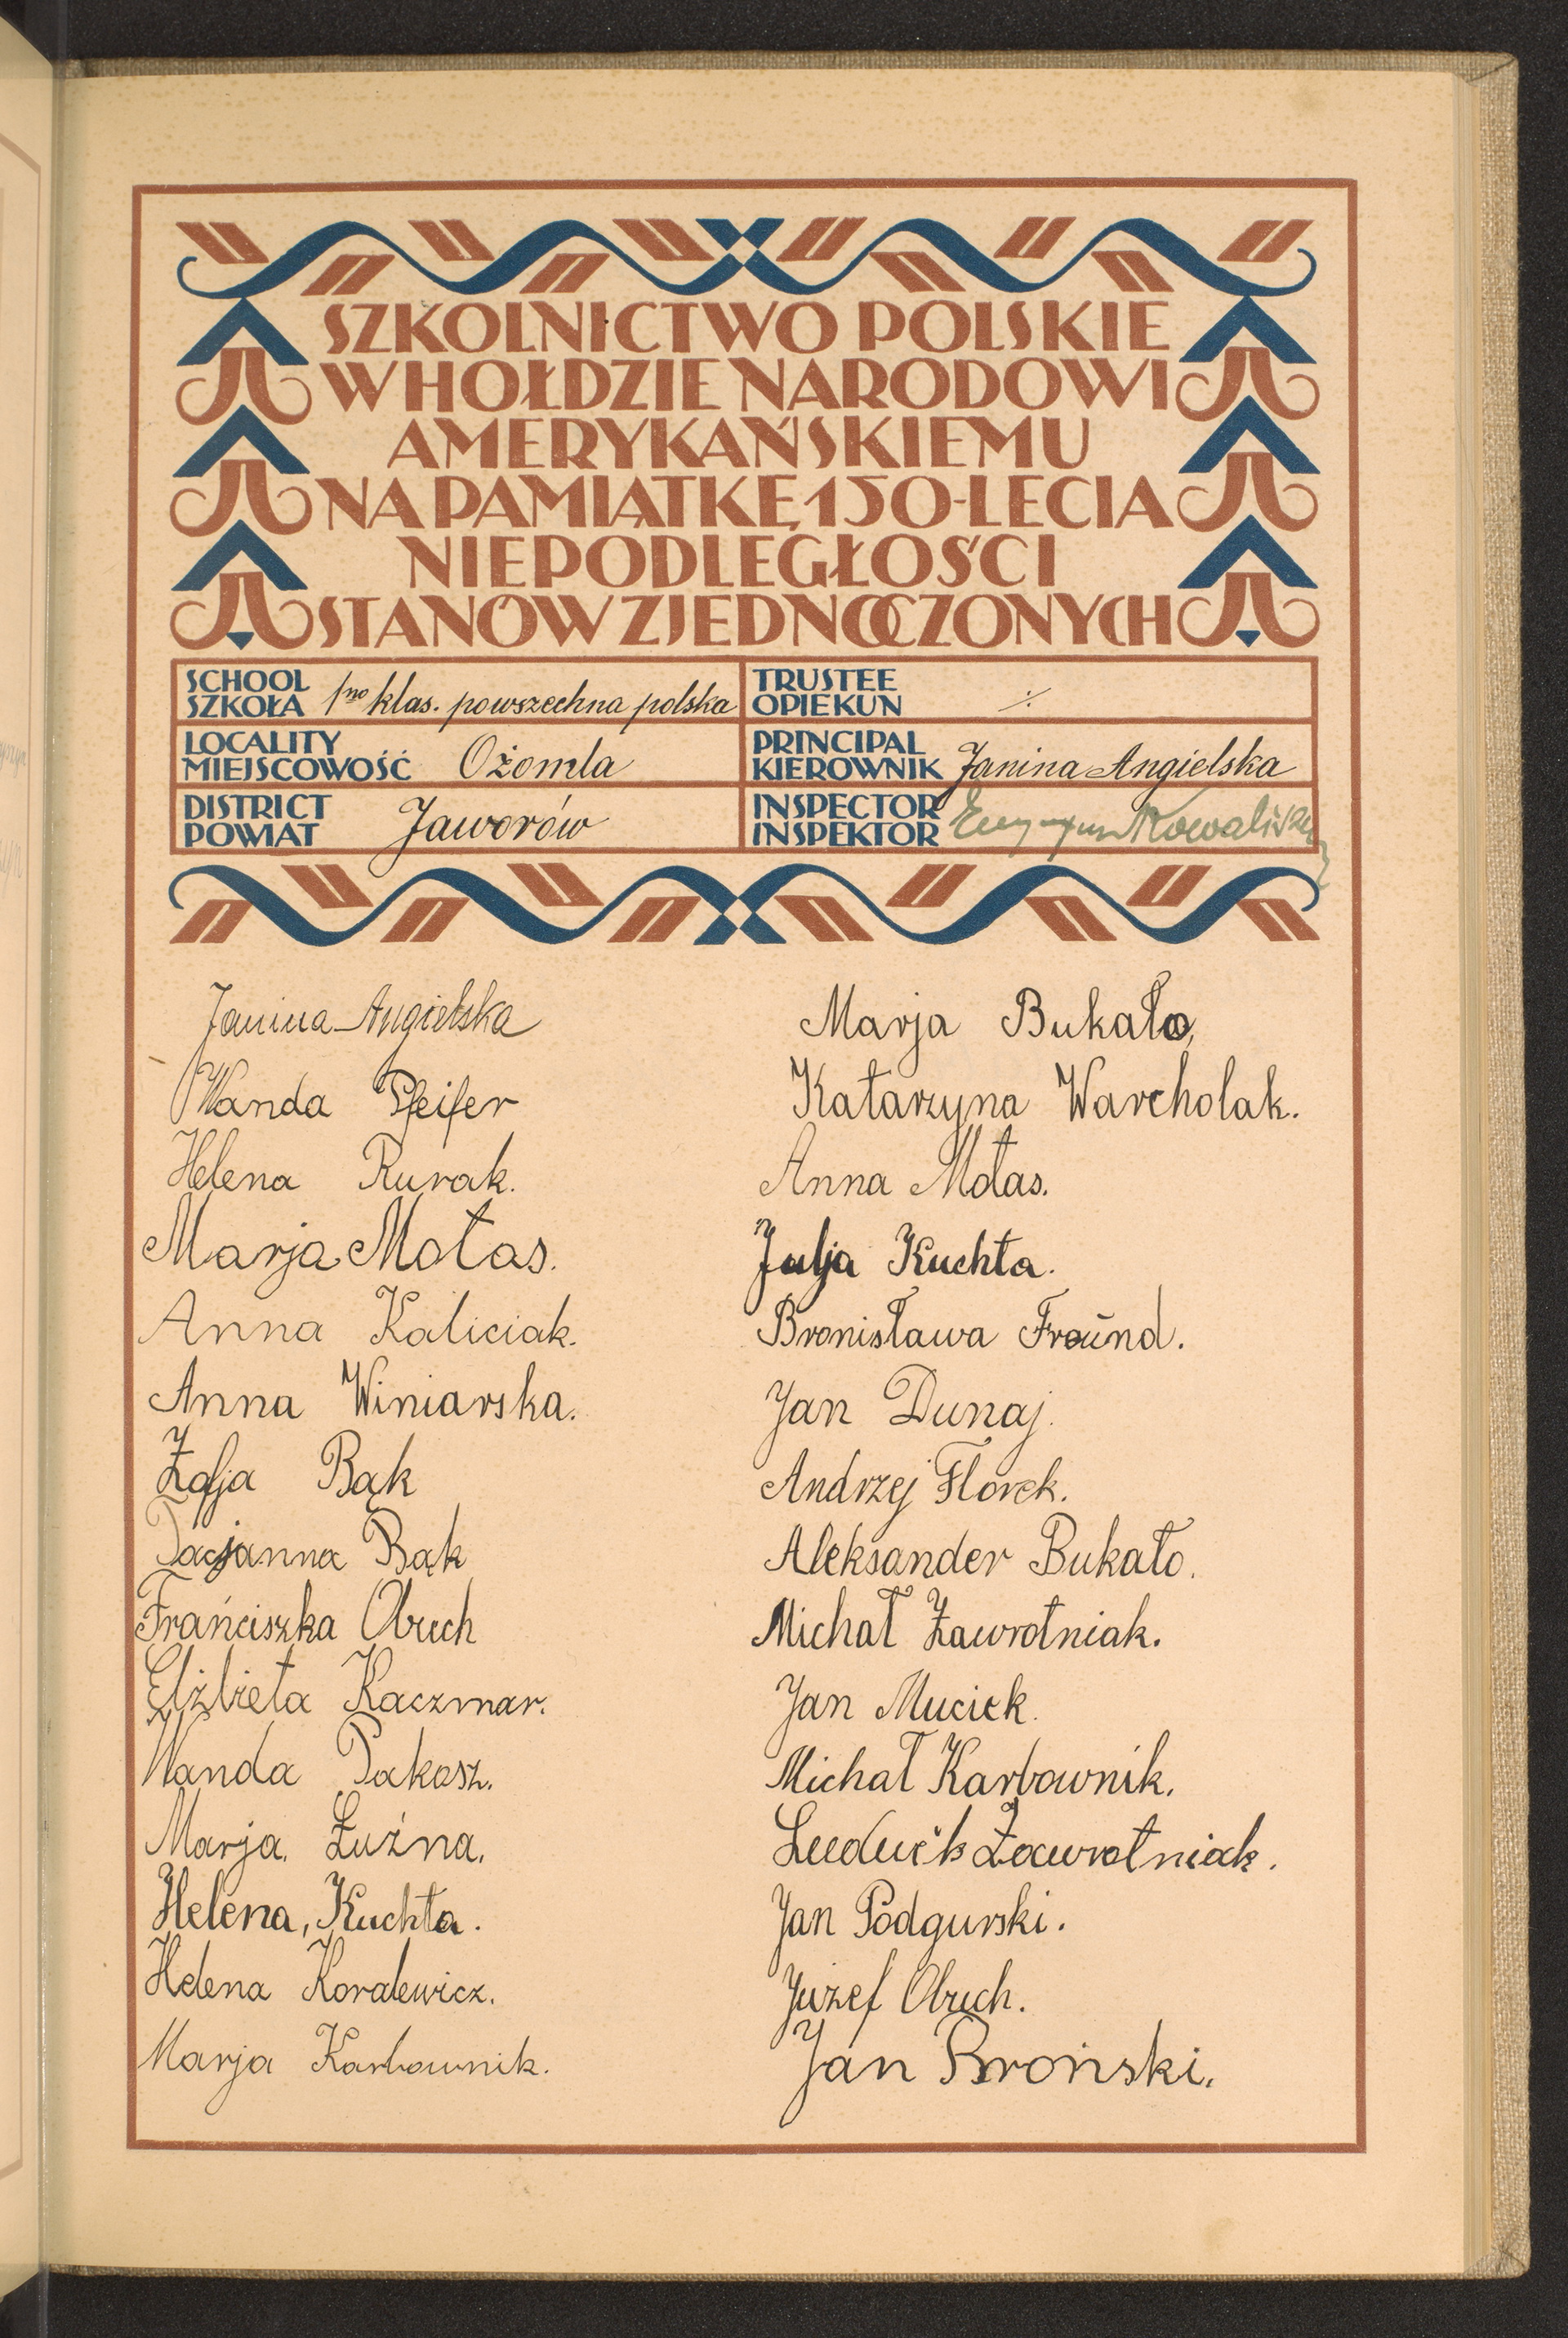 SZKOLNICTWO POLSKIE
W HOŁDZIE NARODOWI
AMERYKAŃSKIEMU
NA PAMIĄTKĘ 150-LECIA
NIEPODLEGŁOŚCI
STANÓW ZJEDNOCZONYCH
SCHOOL
SZKOŁA 1no klas. powszechna polska
TRUSTEE
OPIEKUN ·/·
LOCALITY
MIEJSCOWOŚĆ Ożomla
PRINCIPAL
KIEROWNIK Janina Angielska
DISTRICT
POWIAT Jaworów
INSPECTOR
INSPEKTOR
Janina Angielska
Wanda Pfeifer
Helena Rurak.
Marja Mołas.
Anna Kaliciak.
Anna Winiarska.
Zofja Bąk
Bąk
Frańciszka Obuch
Elżbieta Kaczmar.
Wanda Pakosz.
Marja. Łuźna.
Helena, Kuchta.
Helena Koralewicz.
Marja Karbownik.
Marja Bukało,
Katarzyna Warcholak.
Anna Mołas.
Julja Kuchta.
Bronisława Freünd.
Jan Dunaj.
Andrzej Florek.
Aleksander Bukało.
Michał Zawrotniak.
Jan Muciek.
Michał Karbownik.
Ludwik Zawrotniak.
Jan Podgurski.
Juzef Obuch.
Jan Broński.